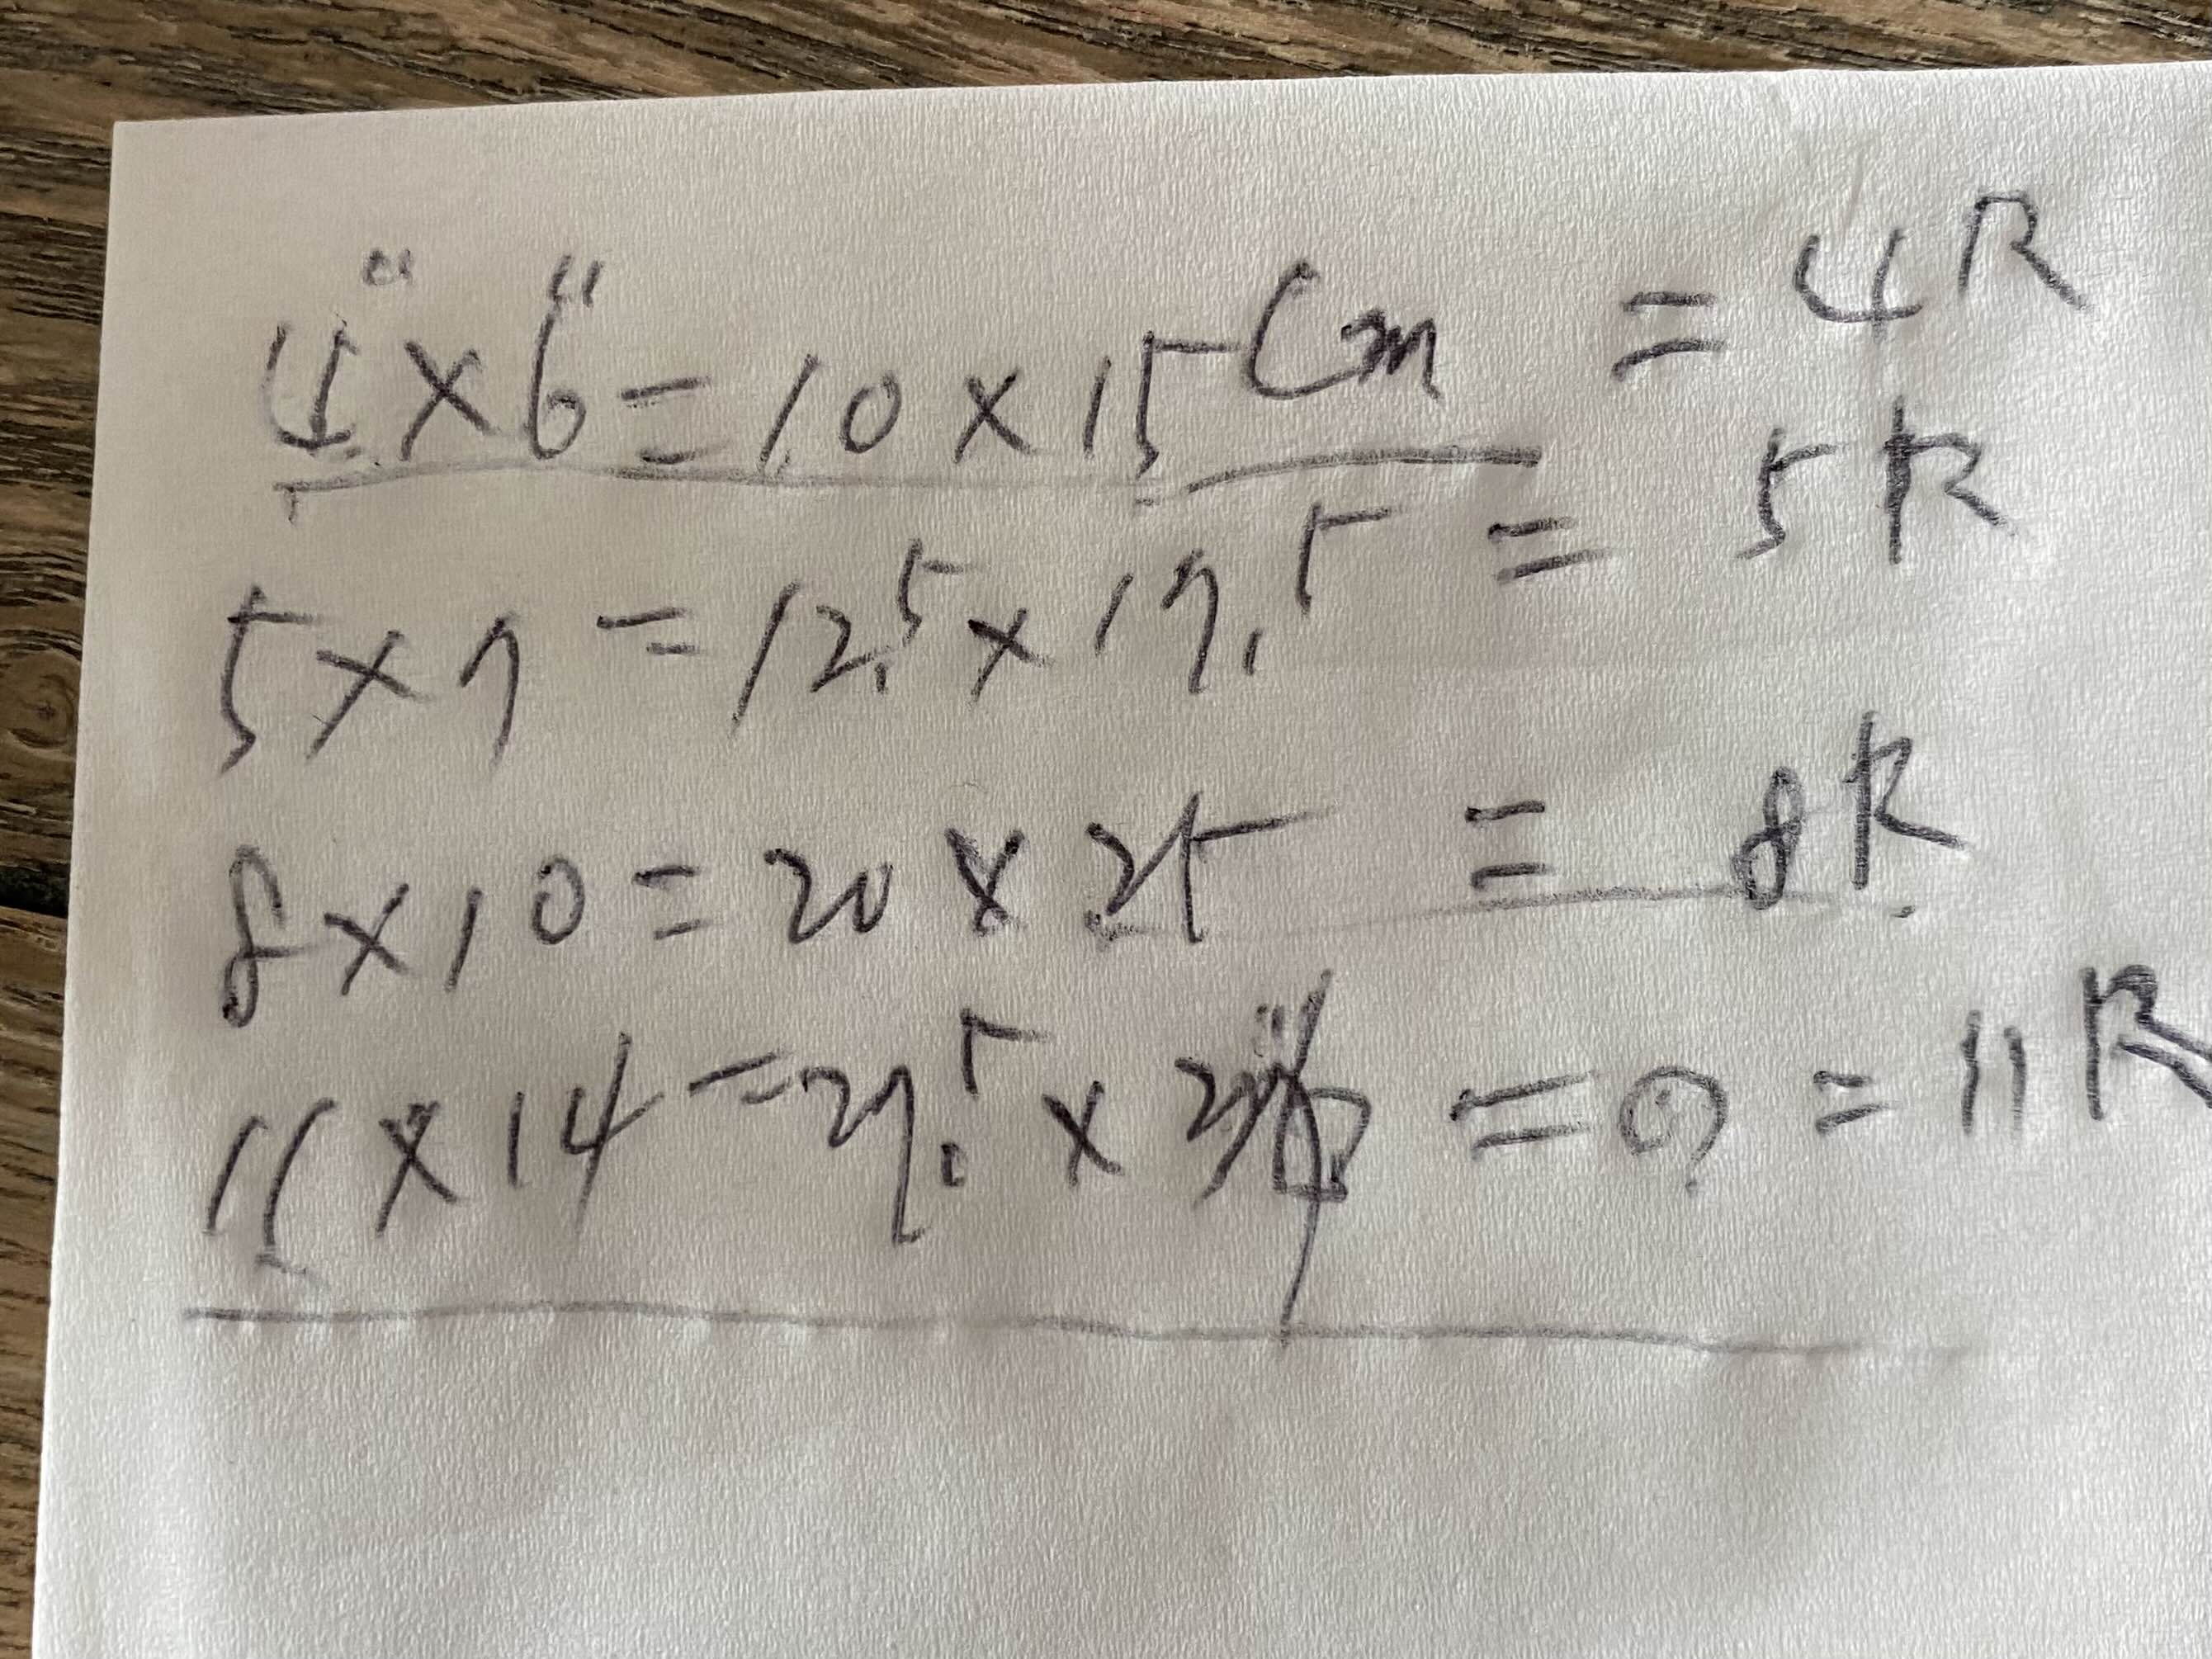 4" x 6" = 10 x 15 Cm = 4R
5 x 7 = 12.5 x 17.5 = 5R
8 x 10 = 20 x 25 = 8R
11 x 14 = 27.5 x = = 11R